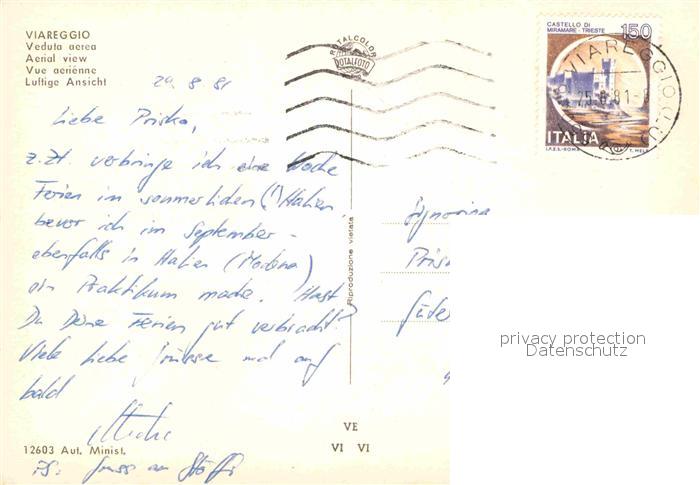 VIAREGGIO
Veduta aerea
Aerial view
Vue aeriènne
Luftige Ansicht
ROTALCOLOR
ROTALFOTO
CASTELLO DI
MIRAMARE - TRIESTE
150
ITALIA
I.P.Z.S.-ROMA
VIAREGGIO
25.8.81
29 8 81
Liebe Priska,
z.Zt. verbringe ich eine Woche
Ferien im sommerlichen (!) Italien,
bevor ich im September -
ebenfalls in Italien (Modena)
ein Praktikum mache. Hast
Du Deine Ferien gut verbracht?
Viele liebe Grüsse und auf
bald
Signorina
Pris
Güte
Riproduzione vietata
privacy protection
Datenschutz
VE
VI VI
12603 Aut. Minist.
PS: Gruss an Steffi